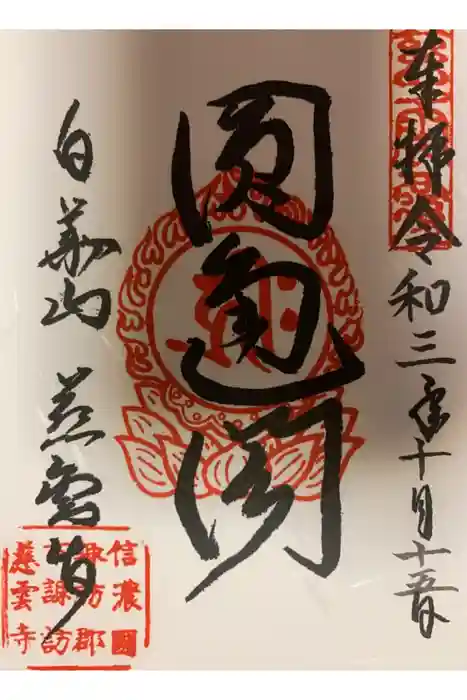 奉拝 令和三年十月十五日
圓通閣
白華山 慈雲寺
信濃國
諏訪郡
下諏訪
慈雲寺